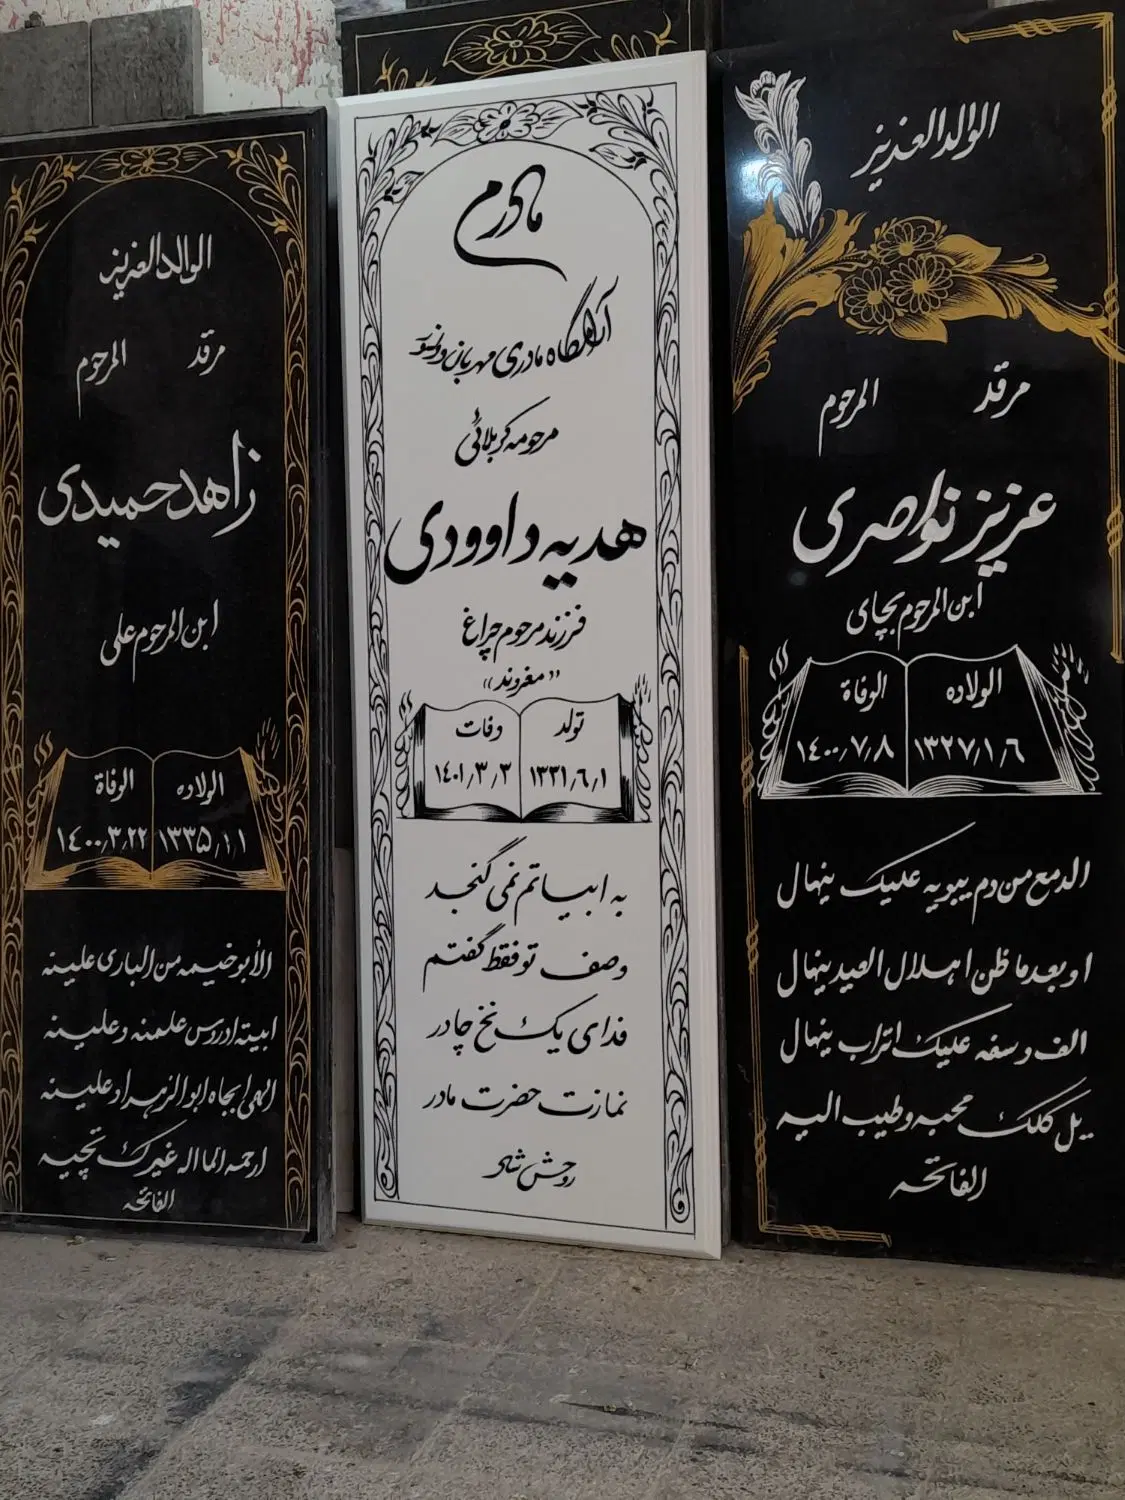 الوالد العزیز
مرقد المرحوم
عزیز نواصری
ابن المرحوم بجای
الولاده الوفاة
۱۳۲۷/۱/٦ ۱٤۰۰/۷/۸
الدمع من دم یبویه علیک ینهال
او بعد ما ظن اهلال العید ینهال
الف وسفه علیک اتراب ینهال
یل کلک محبه وطیب الیه
الفاتحه
مادرم
آرامگاه مادری مهربان و دلسوز
مرحومه کربلائی
هدیه داوودی
فرزند مرحوم چراغ
«مغروند»
تولد وفات
۱۳۳۱/٦/۱ ۱٤۰۱/۳/۳
به ابیاتم نمی گنجد
وصف تو فقط گفتم
فدای یک نخ چادر
نمازت حضرت مادر
روحش شاد
الوالد العزیز
مرقد المرحوم
زاهد حمیدی
ابن المرحوم علی
الولاده الوفاة
۱۳۳۵/۱/۱ ۱٤۰۰/۳/۲۲
الأبو خیمه من الباری علینه
ابیته ادروس علمنه وعلینه
الهی ابجاه ابو الزهراء علینه
ارحمه الماله غیرک تچیه
الفاتحه